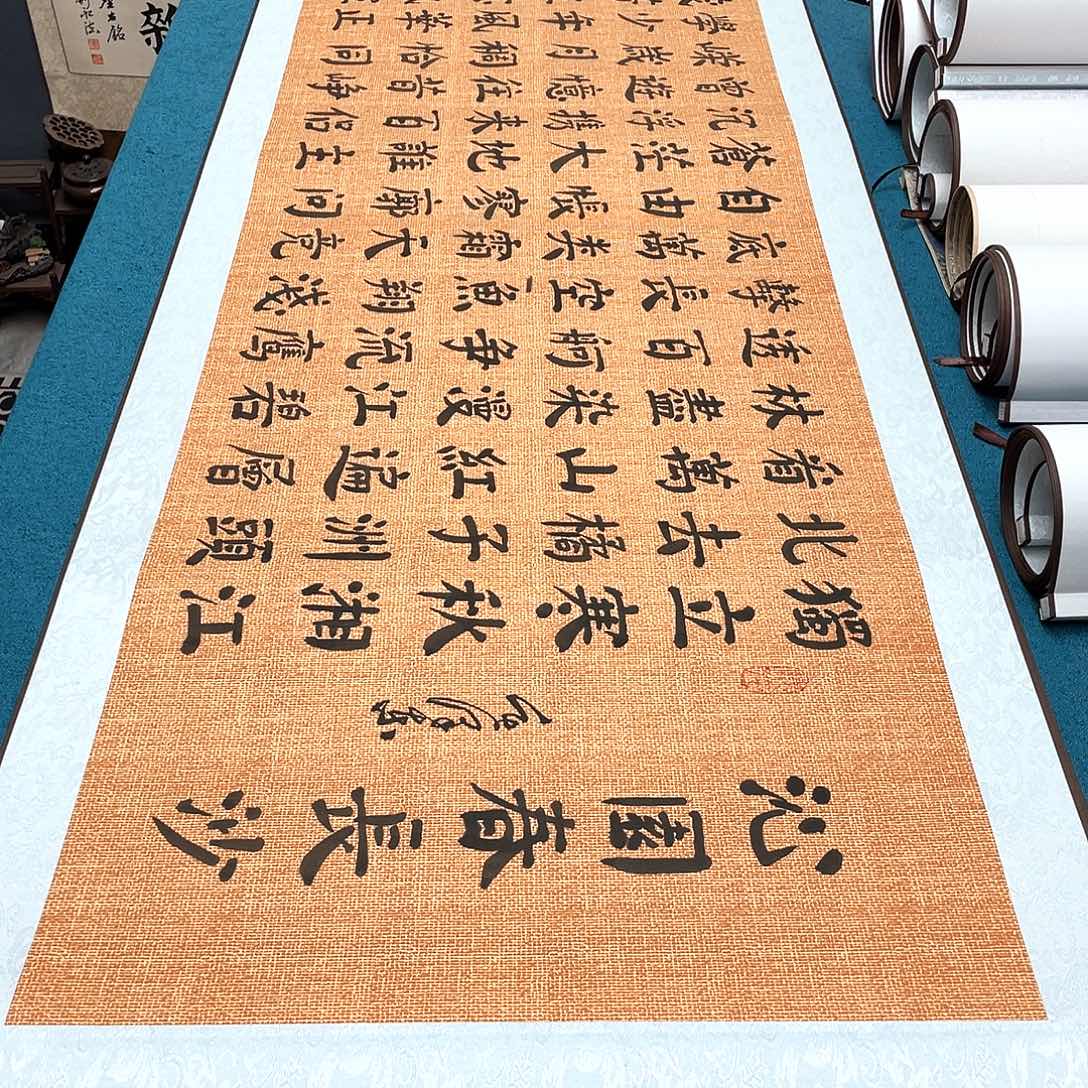 沁園春長沙
獨立寒秋湘江
北去橘子洲頭
看萬山紅遍層
林盡染漫江碧
透百舸爭流鷹
擊長空魚翔淺
底萬類霜天競
自由悵寥廓問
蒼茫大地誰主
沉浮攜來百侶
曾遊憶往昔崢
嶸歲月稠恰同
學少年風華正